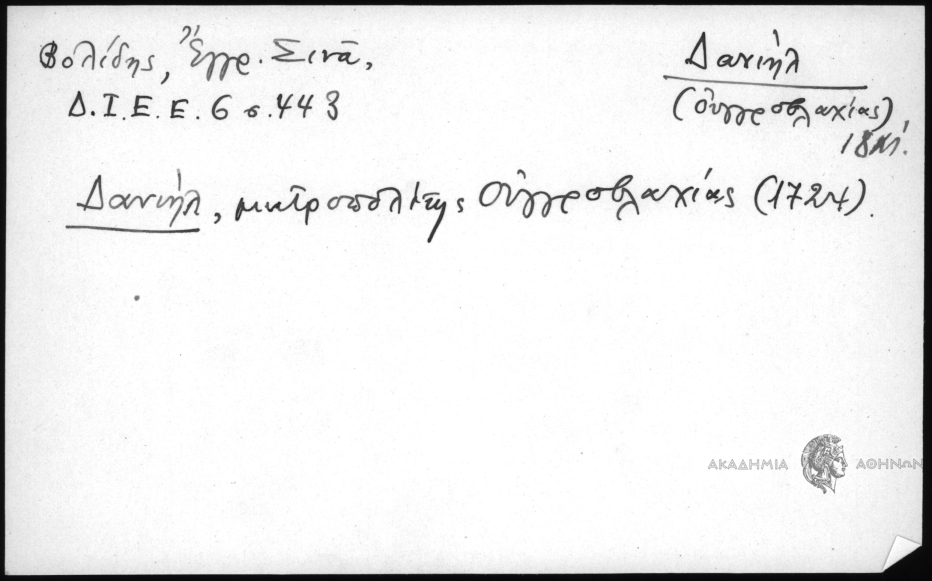 Βολίδης, Ἔγγρ. Σινᾶ,
Δ.Ι.Ε.Ε. 6 σ. 443
Δανιήλ
(Οὐγγροβλαχίας)
18
Δανιήλ, μητροπολίτης Οὐγγροβλαχίας (1724).
ΑΚΑΔΗΜΙΑ ΑΘΗΝΩΝ